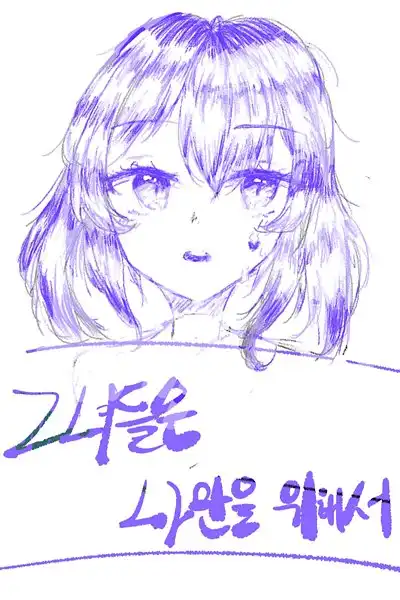 그녀들은
나만을 위해서